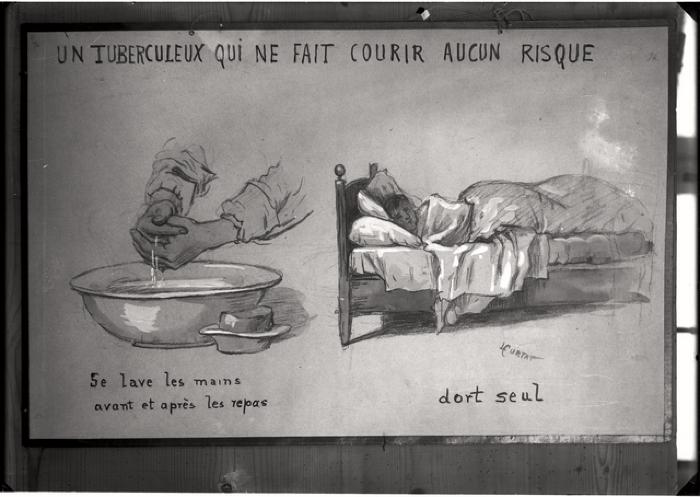 UN TUBERCULEUX QUi NE FAIT COURIR AUCUN RISQUE
Se lave les mains
avant et après les repas
dort seul